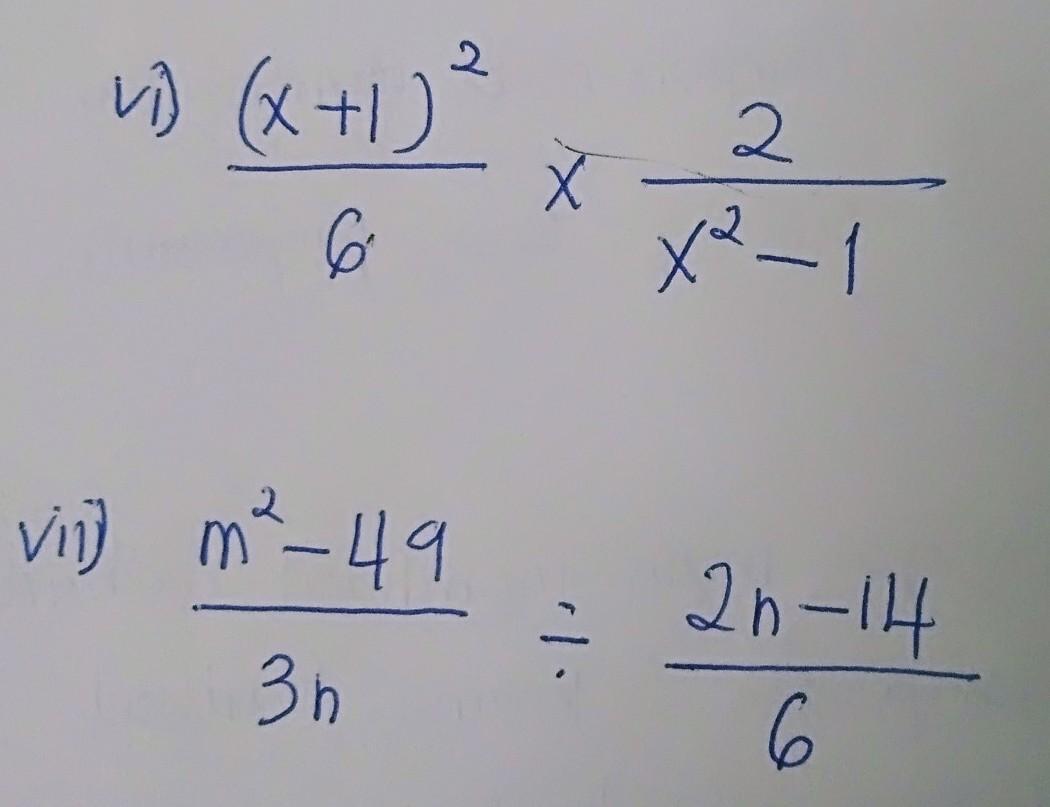 vi) (x+1)² / 6 × 2 / x² − 1
vii) m² − 49 / 3n ÷ 2n − 14 / 6